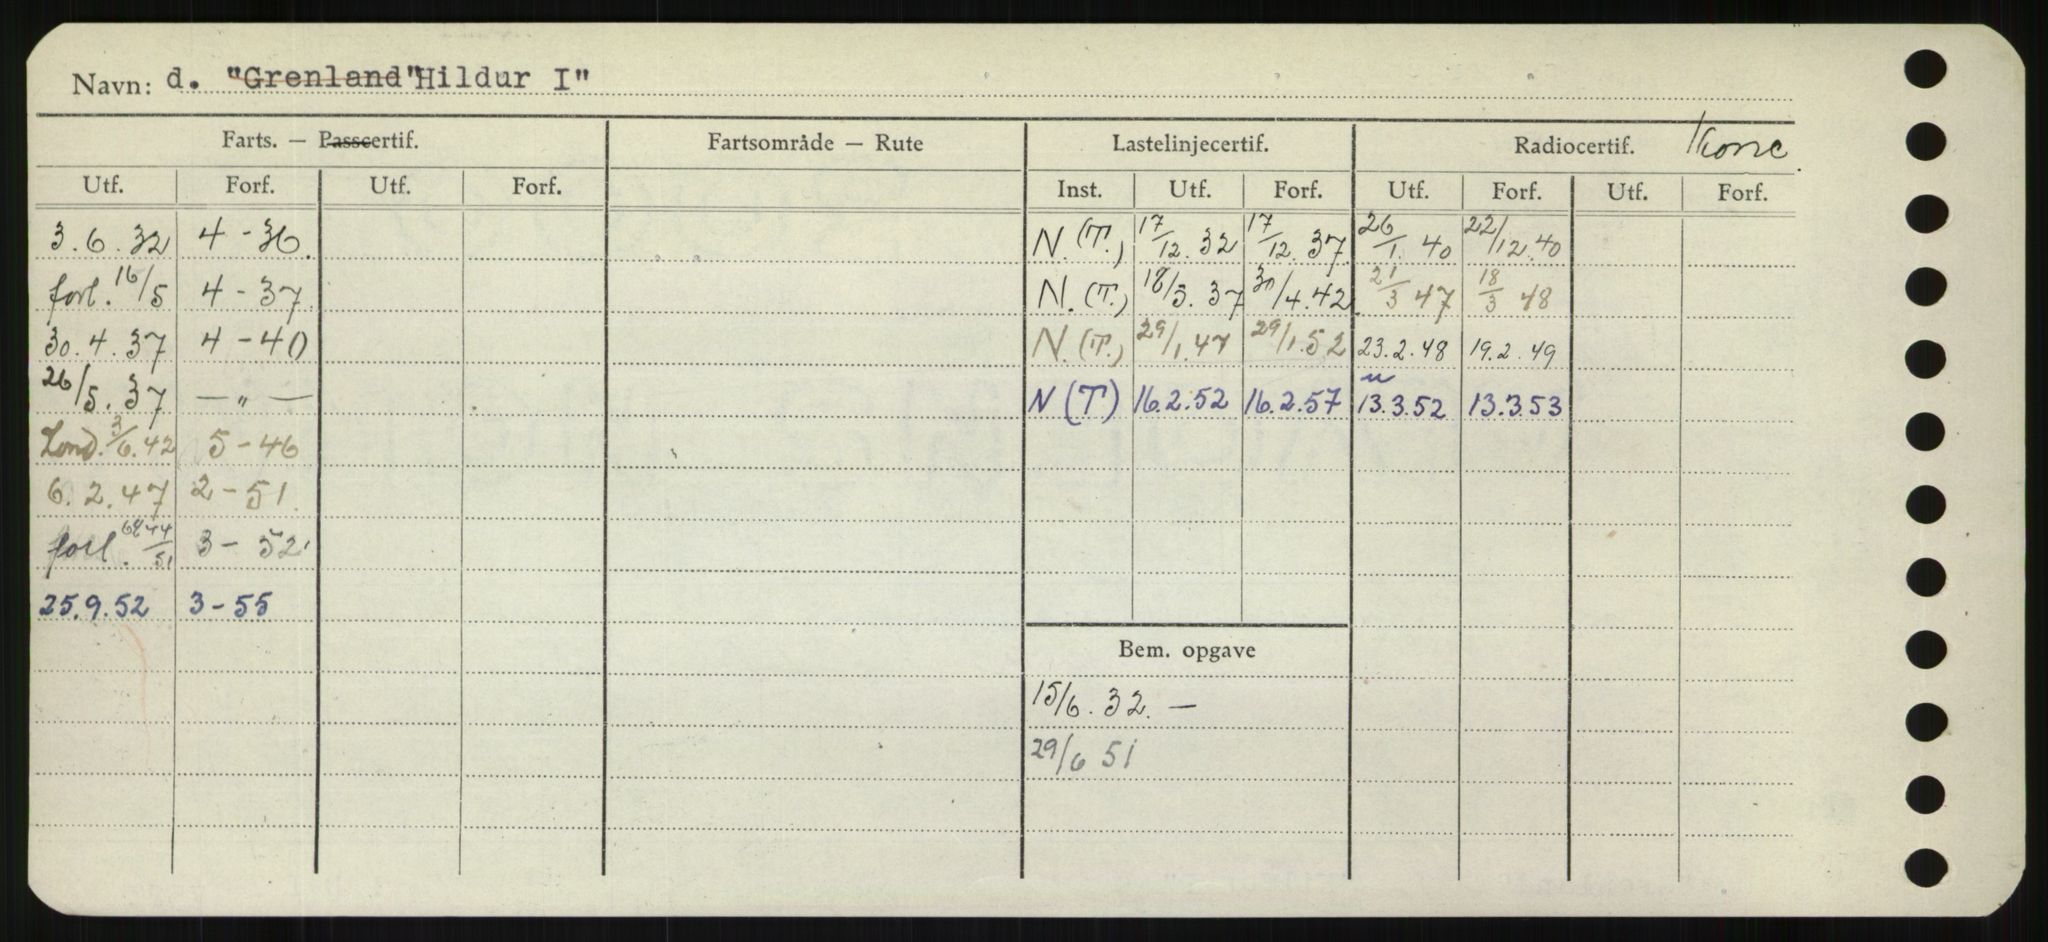 Navn: d. "Grenland" Hildur I"
Farts. — Passcertif. Fartsområde — Rute Lastelinjecertif. Radiocertif.
Utf. Forf. Utf. Forf. Inst. Utf. Forf. Utf. Forf. Utf. Forf.
3.6.32 4 - 36. N. (T.) 17/12. 32 17/12. 37 26/1. 40 22/12.40
forl. 16/5 4 - 37 N. (T.) 18/3. 37 30/4.42 21/3 47 18/3 48
30.4.37 4 - 40 N. (T.) 29/1.47 29/1.52 23.2.48 19.2.49
26/5.37 — " — N (T) 16.2.52 16.2.57 13.3.52 13.3.53
Lond. 3/6.42 5 - 46
6.2.47 2 - 51.
forl. 3 - 52
25.9.52 3 - 55
Bem. opgave
15/6. 32. —
29/6 51